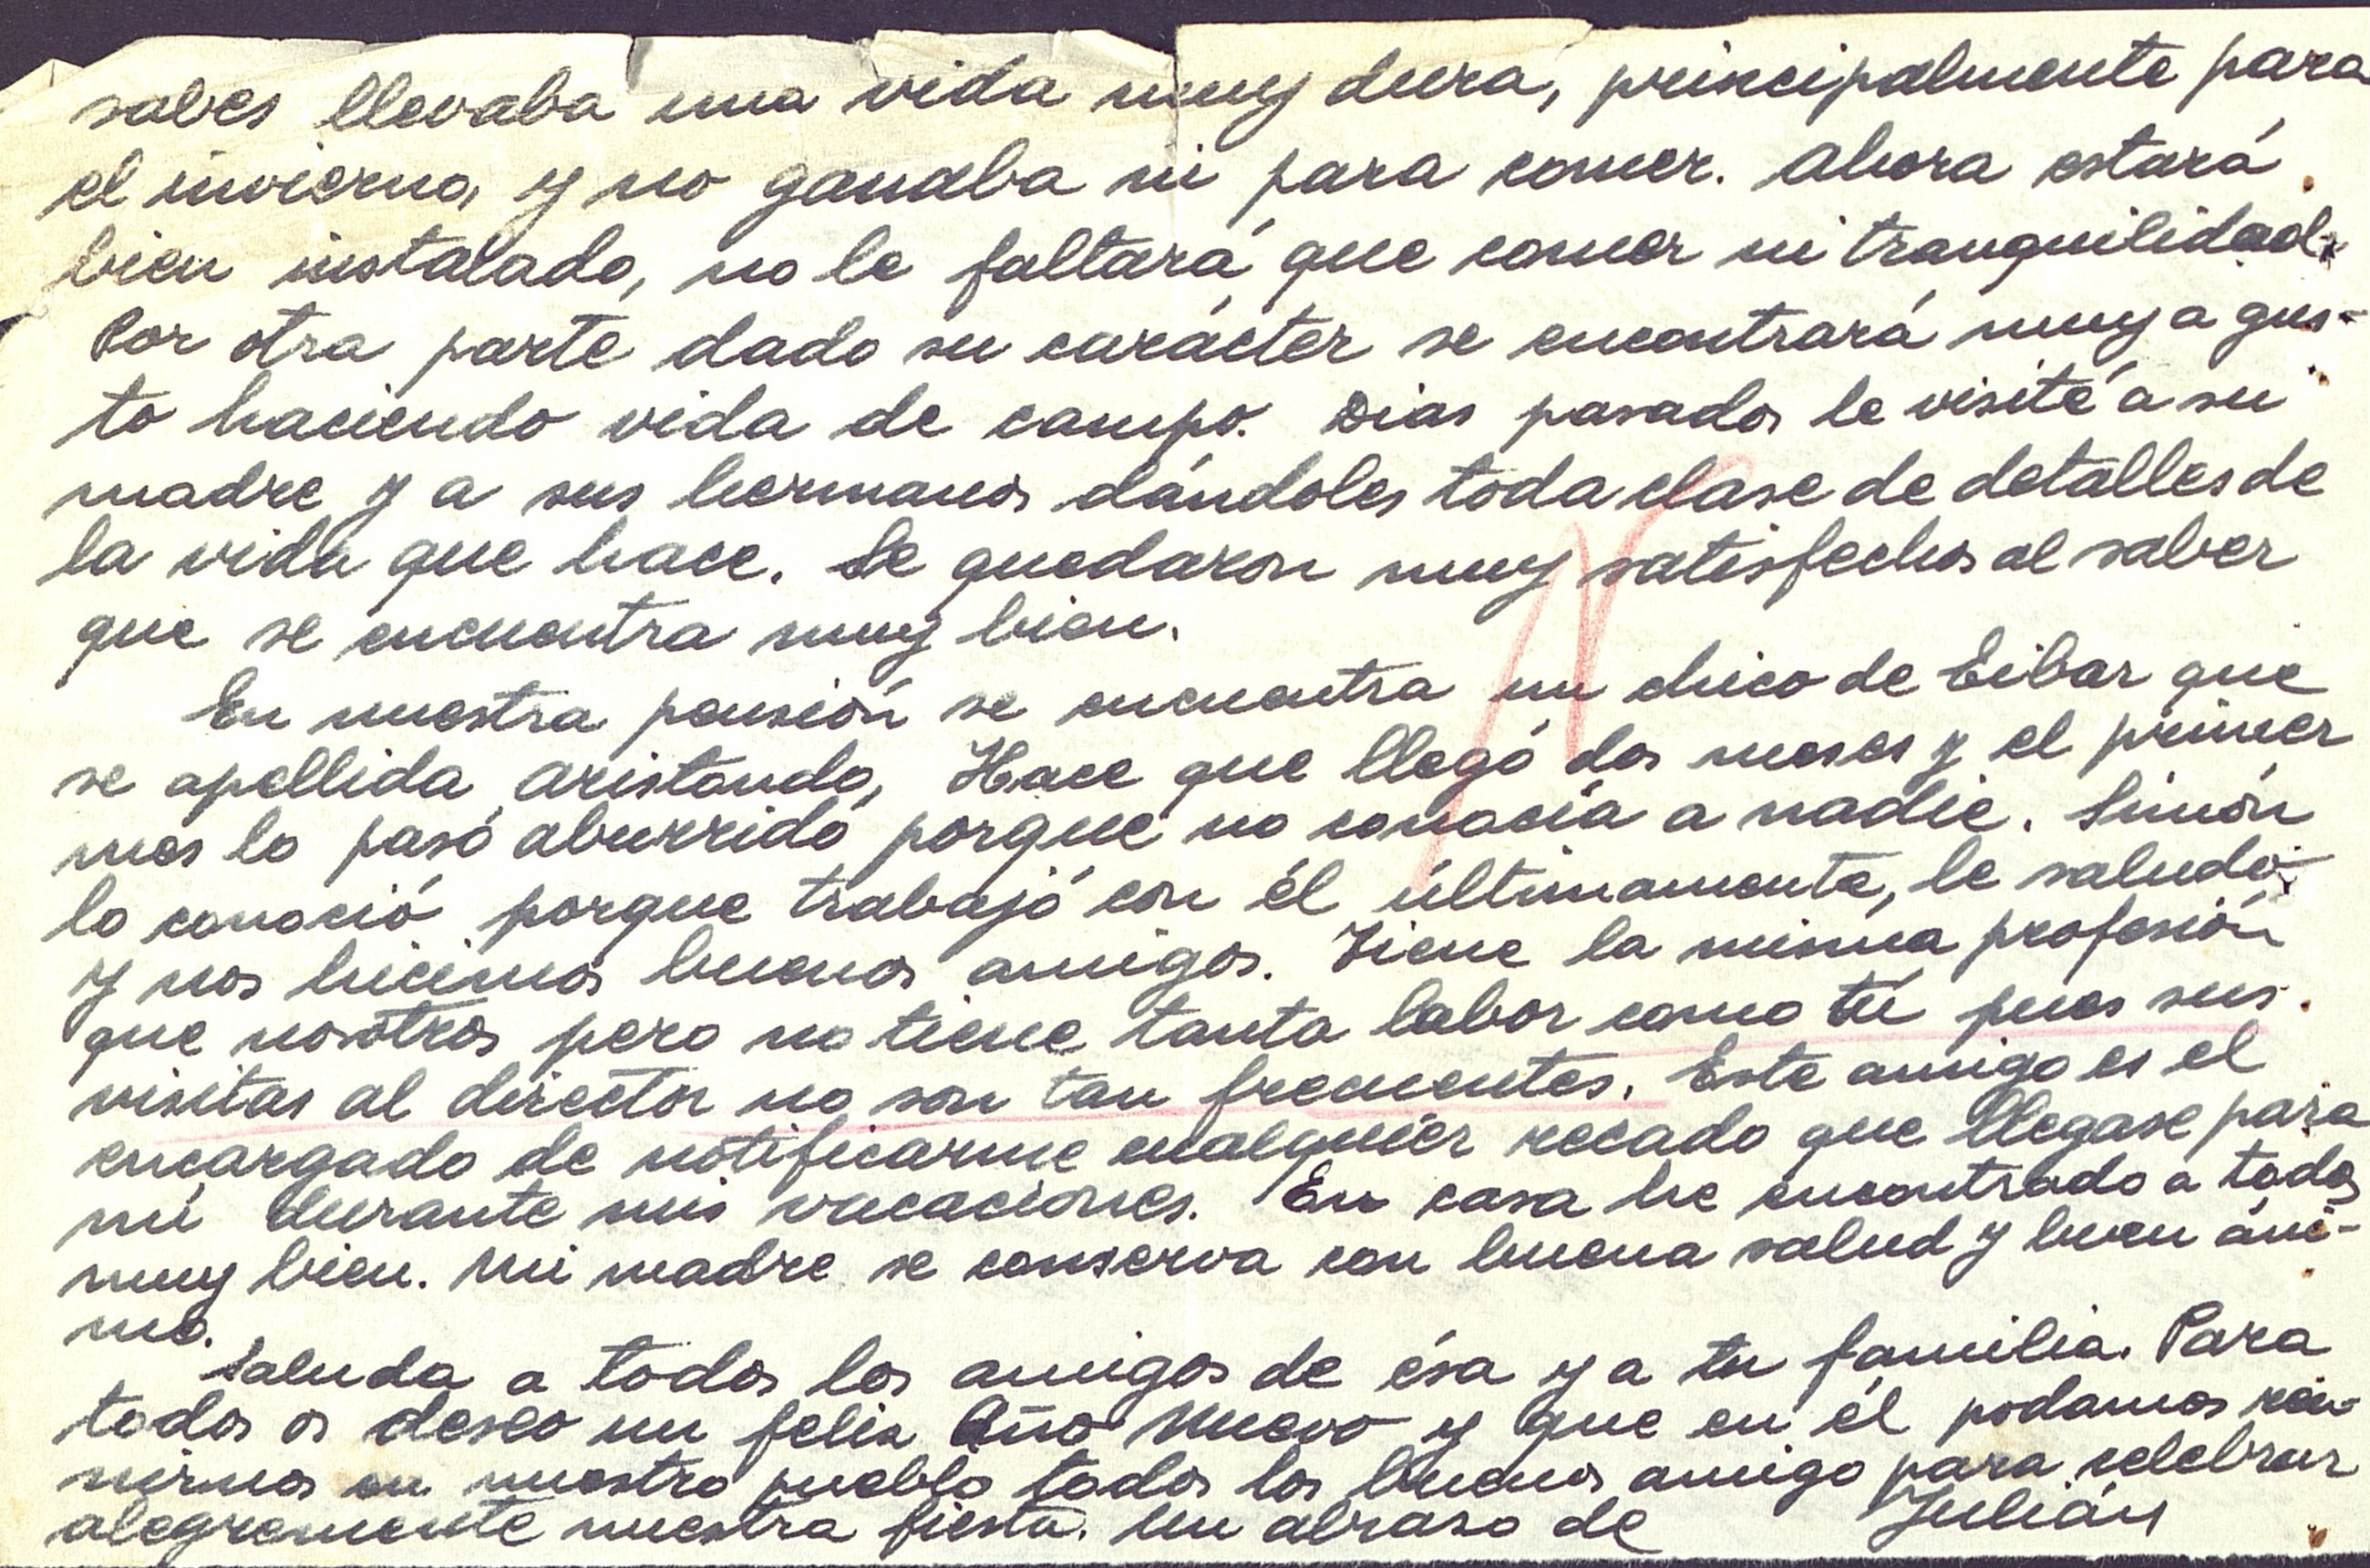 sabes llevaba una vida muy dura, principalmente para
el invierno, y no ganaba ni para comer. Ahora estará
bien instalado, no le faltará que comer ni tranquilidad.
Por otra parte dado su carácter se encontrará muy a gus-
to haciendo vida de campo. Dias pasados le visité a su
madre y a sus hermanos dándoles toda clase de detalles de
la vida que hace. Se quedaron muy satisfechos al saber
que se encuentra muy bien.
En nuestra pensión se encuentra un chico de Eibar que
se apellida Aristondo, Hace que llegó dos meses y el primer
mes lo pasó aburrido porque no conocía a nadie. Simón
lo conoció porque trabajó con él últimamente, le saludó
y nos hicimos buenos amigos. Tiene la misma profesión
que nosotros pero no tiene tanta labor como tú pues sus
visitas al director no son tan frecuentes. Este amigo es el
encargado de notificarme cualquier recado que llegase para
mí durante mis vacaciones. En casa he encontrado a todos
muy bien. Mi madre se conserva con buena salud y buen áni-
mo.
Saluda a todos los amigos de ésa y a tu familia. Para
todos os deseo un feliz Año Nuevo y que en él podamos reu-
nirnos en nuestro pueblo todos los buenos amigo para celebrar
alegremente nuestra fiesta. Un abraso de Julián